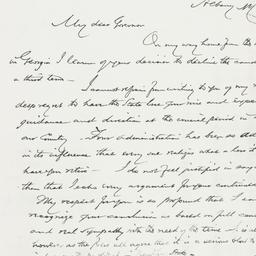 Albany, N.Y.
My dear Governor
On my way home from the
in Georgia I learn of your decision to decline the nom
a third term —
I cannot refrain from writing to you of my
deep regret to have the State lose your nice and exper
guidance and direction at the crucial period in
our Country. Your administration has been so
in its influence that every one realizes what a loss it
have you retire — I do not feel justified in any
than that I echo every argument for your continued
My respect for you is so profound that I can
recognize your conclusion as based on full con
and real sympathy with the need of the time — I
agree that it is a serious blow to